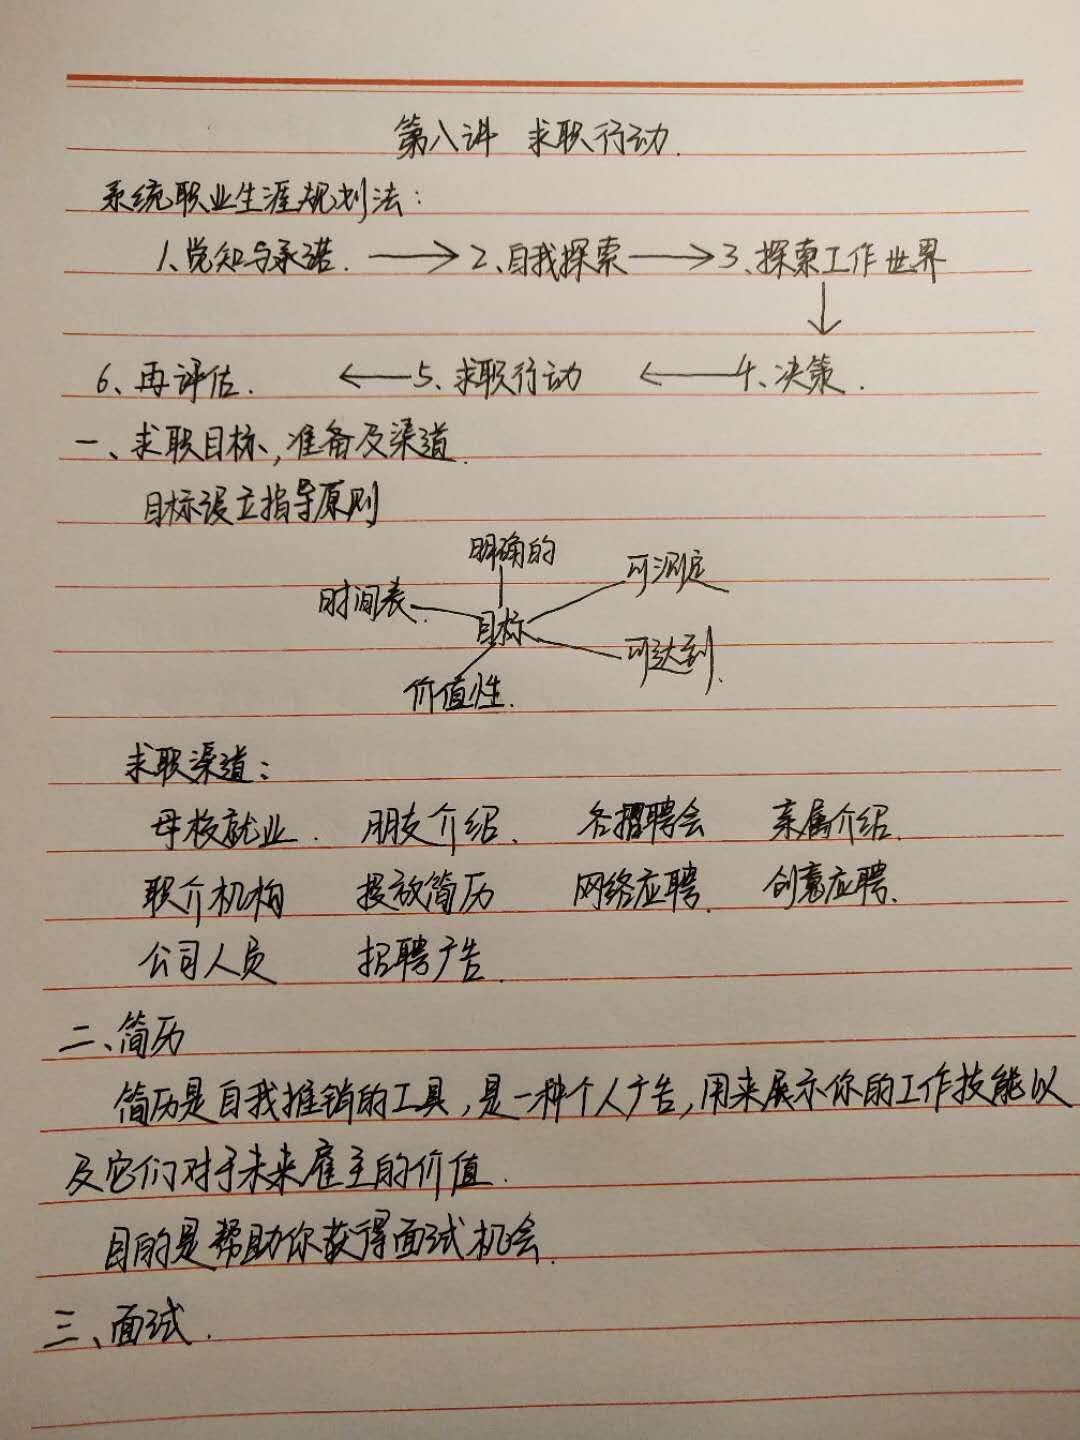 第八讲 求职行动.
系统职业生涯规划法:
1、觉知与承诺. → 2、自我探索 → 3、探索工作世界
↓
6、再评估. ← 5、求职行动 ← 4、决策.
一、求职目标,准备及渠道.
目标设立指导原则
明确的 可测定
时间表. 目标
可达到.
价值性.
求职渠道:
母校就业. 朋友介绍、 各招聘会 亲属介绍.
职介机构 投放简历 网络应聘. 创意应聘.
公司人员 招聘广告.
二、简历
简历是自我推销的工具,是一种个人广告,用来展示你的工作技能以
及它们对于未来雇主的价值.
目的是帮助你获得面试机会.
三、面试.